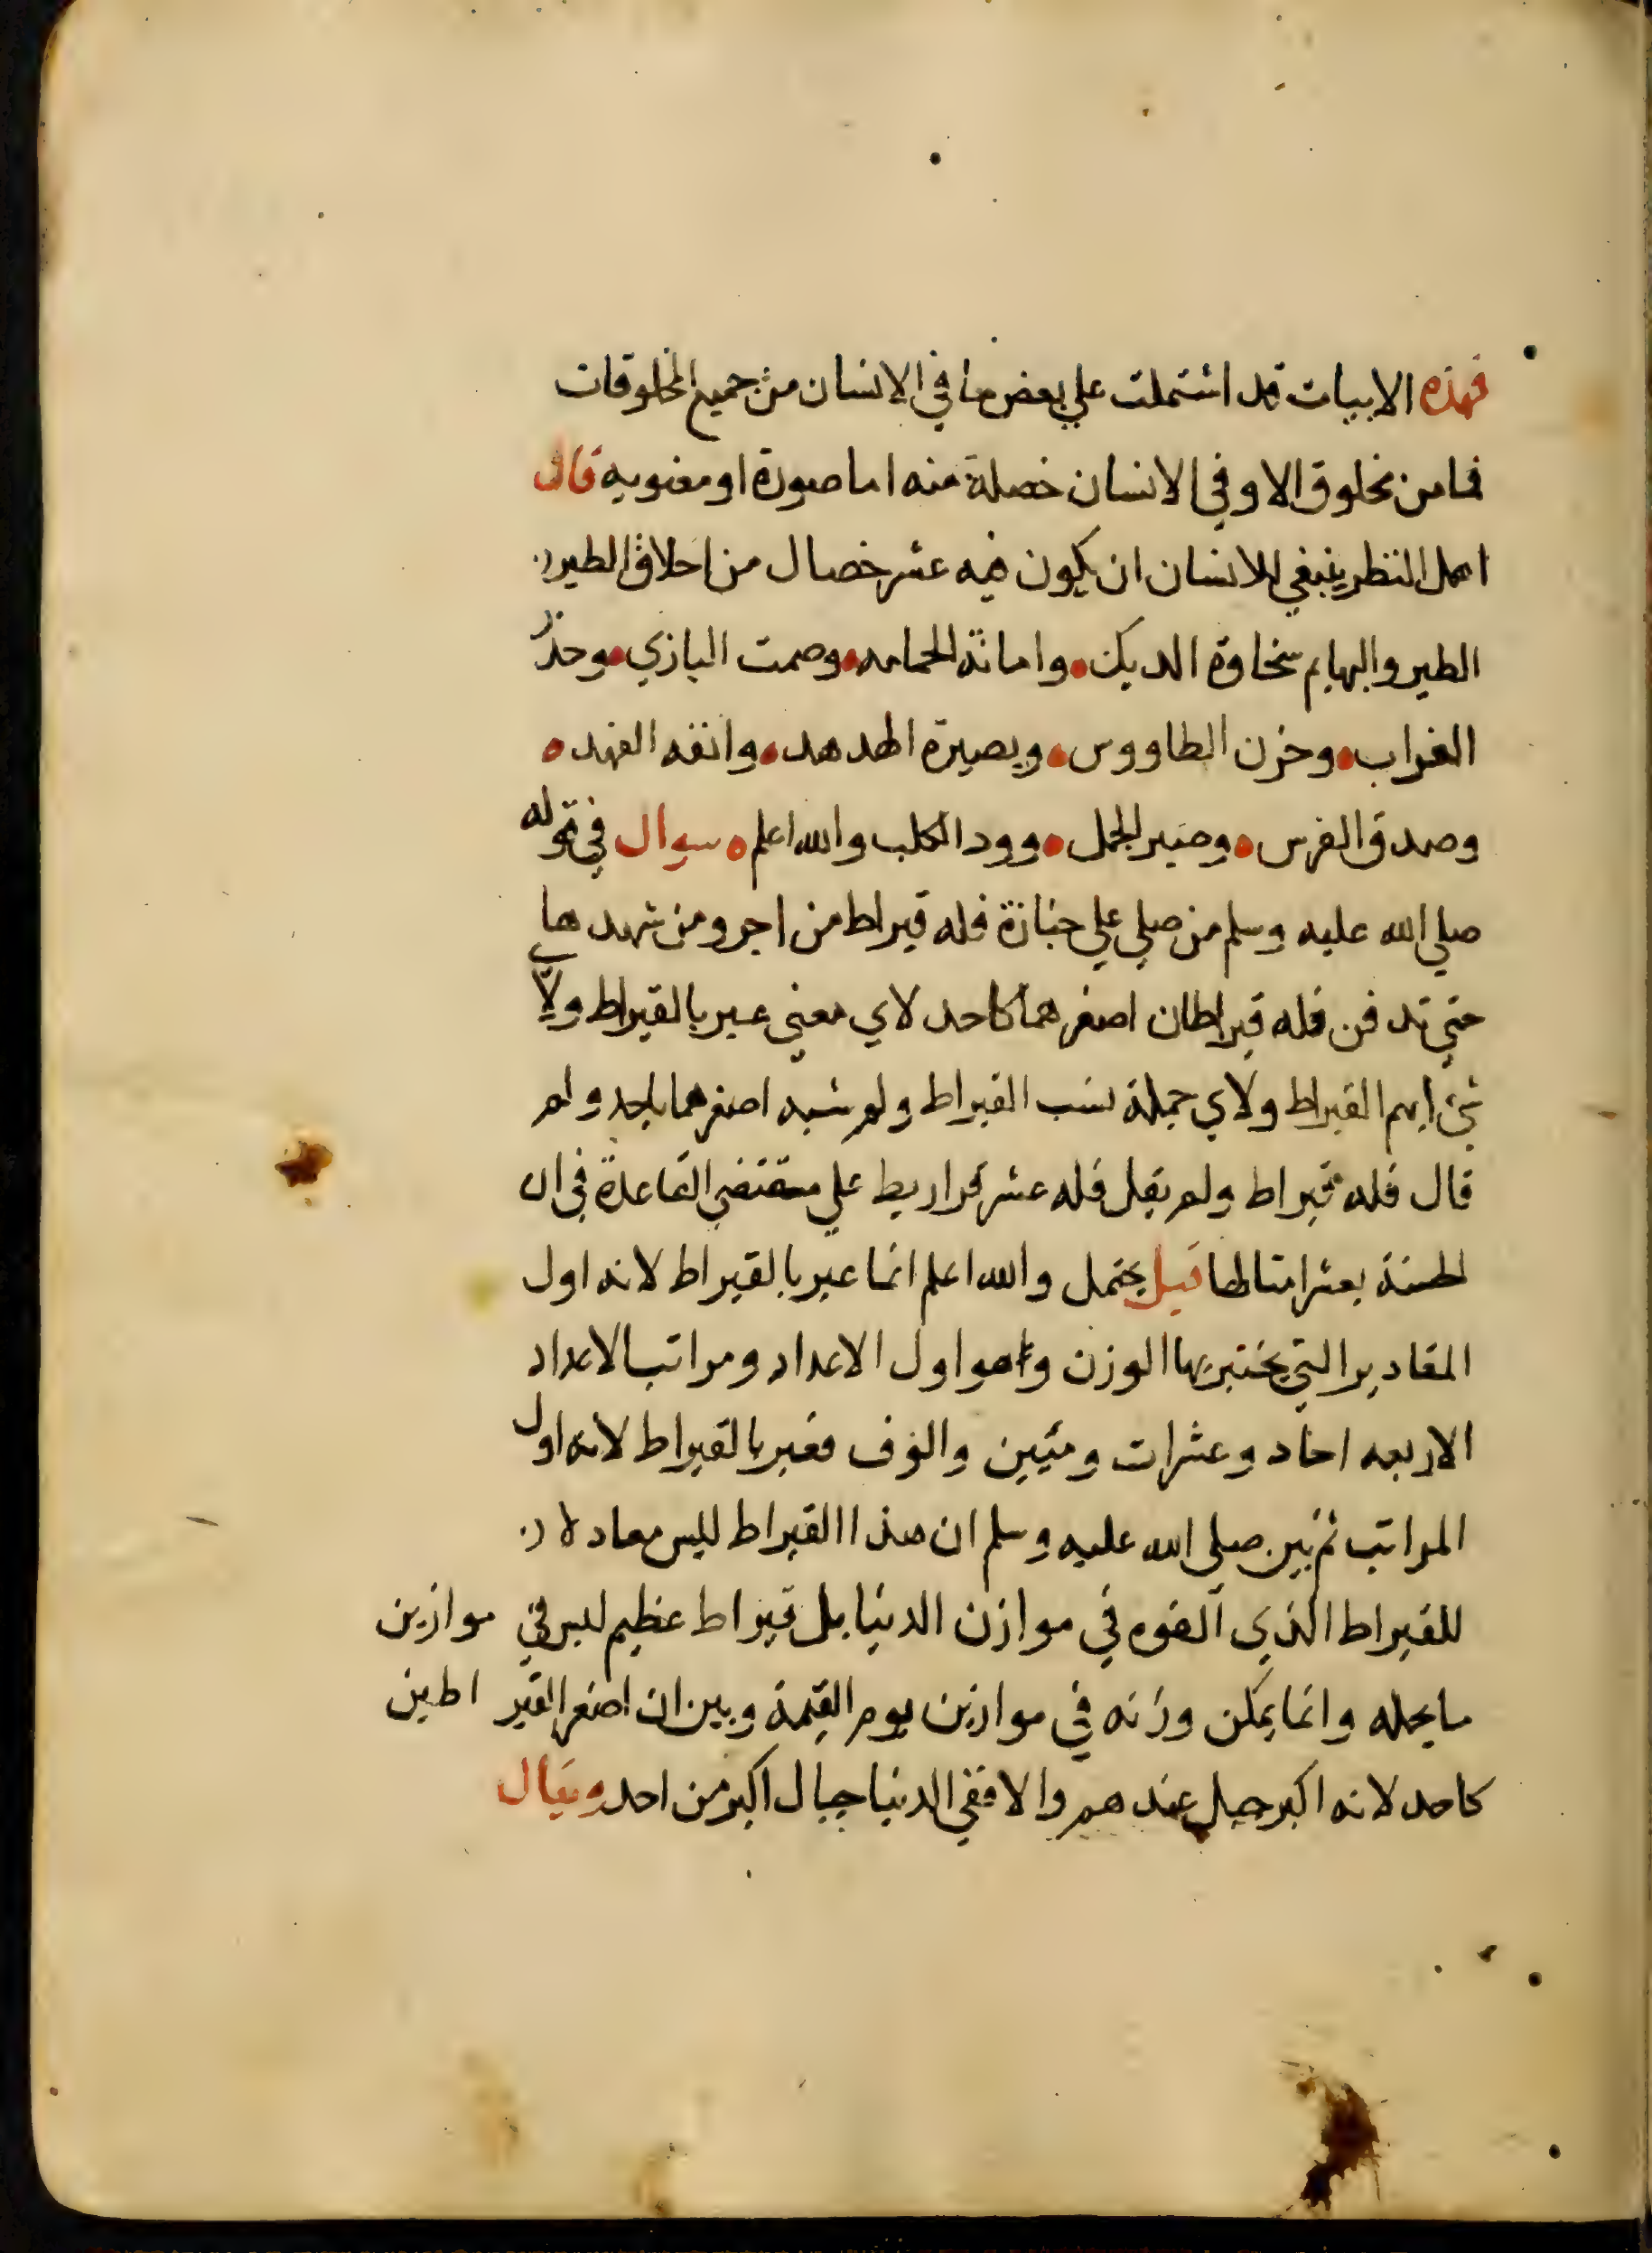 فهذه الابيات قد اشتملت علي بعض ما في الانسان من جميع المخلوقات
فما من مخلوق الا وفي الانسان خصلة منه اما صورة او معنويه قال
اهل النظر ينبغي للانسان ان يكون فيه عشر خصال من اخلاق الطير
الطير والبهايم سخاوة الديك وامانة الحمامه وصمت البازي وحذر
الغراب وحزن الطاووس وبصيرة الهدهد وانفه الفهد
وصدق الفرس وصبر الجمل وود الكلب والله اعلم سوال في قوله
صلي الله عليه وسلم من صلي علي جنازة فله قيراط من اجر ومن شهدها
حتي تدفن فله قيراطان اصغرهما كاحد لاي معني عبر بالقيراط ولاي
شيء ابهم القيراط ولاي جملة نسب القيراط ولم شبه اصغرهما باحد ولم
قال فله قيراط ولم يقل فله عشر قراريط علي مقتضي القاعدة في ان
الحسنة بعشر امثالها قيل يحتمل والله اعلم انما عبر بالقيراط لانه اول
المقادير التي يختبر بها الوزن وهو اول الاعداد ومراتب الاعداد
الاربعه احاد وعشرات ومئين والوف فعبر بالقيراط لانه اول
المراتب ثم بين صلي الله عليه وسلم ان هذا القيراط ليس معادلا
للقيراط الذي الفوه في موازن الدنيا بل قيراط عظيم ليس في موازين
ما يحمله وانما يمكن وزنه في موازين يوم القيمة وبين ان اصغر القيراطين
كاحد لانه اكبر جبل عندهم والا ففي الدنيا جبال اكبر من احد ويقال